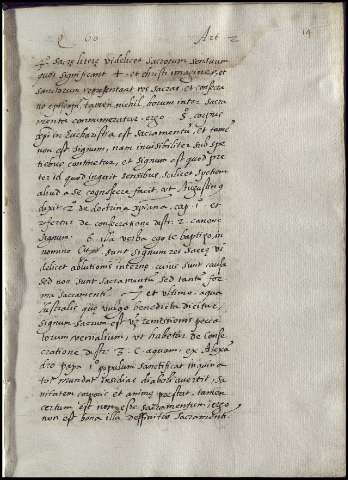 Q 60 Art 2 14
4. sacre litere videlicet sacrorum sensuum
quos significant 4. et christi imagines, et
sanctorum representant res sacras et consecra
tio episcopi, tamen nichil, horum inter sacra
menta connumeratur. ergo 5. corpus
xpi in Eucharistia est sacramentu, et tame
non est signum, nam invisibiliter sub spe
ciebus continetur, et signum est quod pre
ter id quod ingerit sensibus, scilicet speciem
aliud a se cognoscere facit, ut Augustinus
dixit 2 de doctrina xpiana, cap. 1. et
refertur de consecratione dist. 2. canone
signum. 6. illa verba ego te baptizo in
nomine sunt signum rei sacre vi
delicet ablutionis interne, cuius sunt causa
sed non sunt sacramentum sed tantum for
ma sacramenti. 7. et ultimo. aqua
lustralis que vulgo benedicta dicitur,
signum sacrum est remissionis pecca
torum venialium, ut habetur de conse
cratione dist. 3. C. aquam, ex Alexa
dro papa 1. populum sanctificat inquina
tos mundat insidias diaboli avertit, sa
nitatem corporis et anime prestat, tamen
certum est non esse sacramentum. ergo
non est bona illa deffinitio sacramenti.